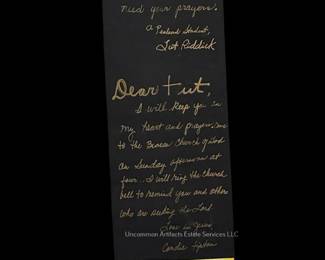 need your prayers.
a Student,
Tut Riddick
Dear tut,
I will keep you in
my heart and prayers. Come
to the Church
on Sunday afternoon at
four... I will ring the church
bell to remind you and others
who are seeking the Lord.
Love in
Candie
Uncommon Artifacts Estate Services LLC